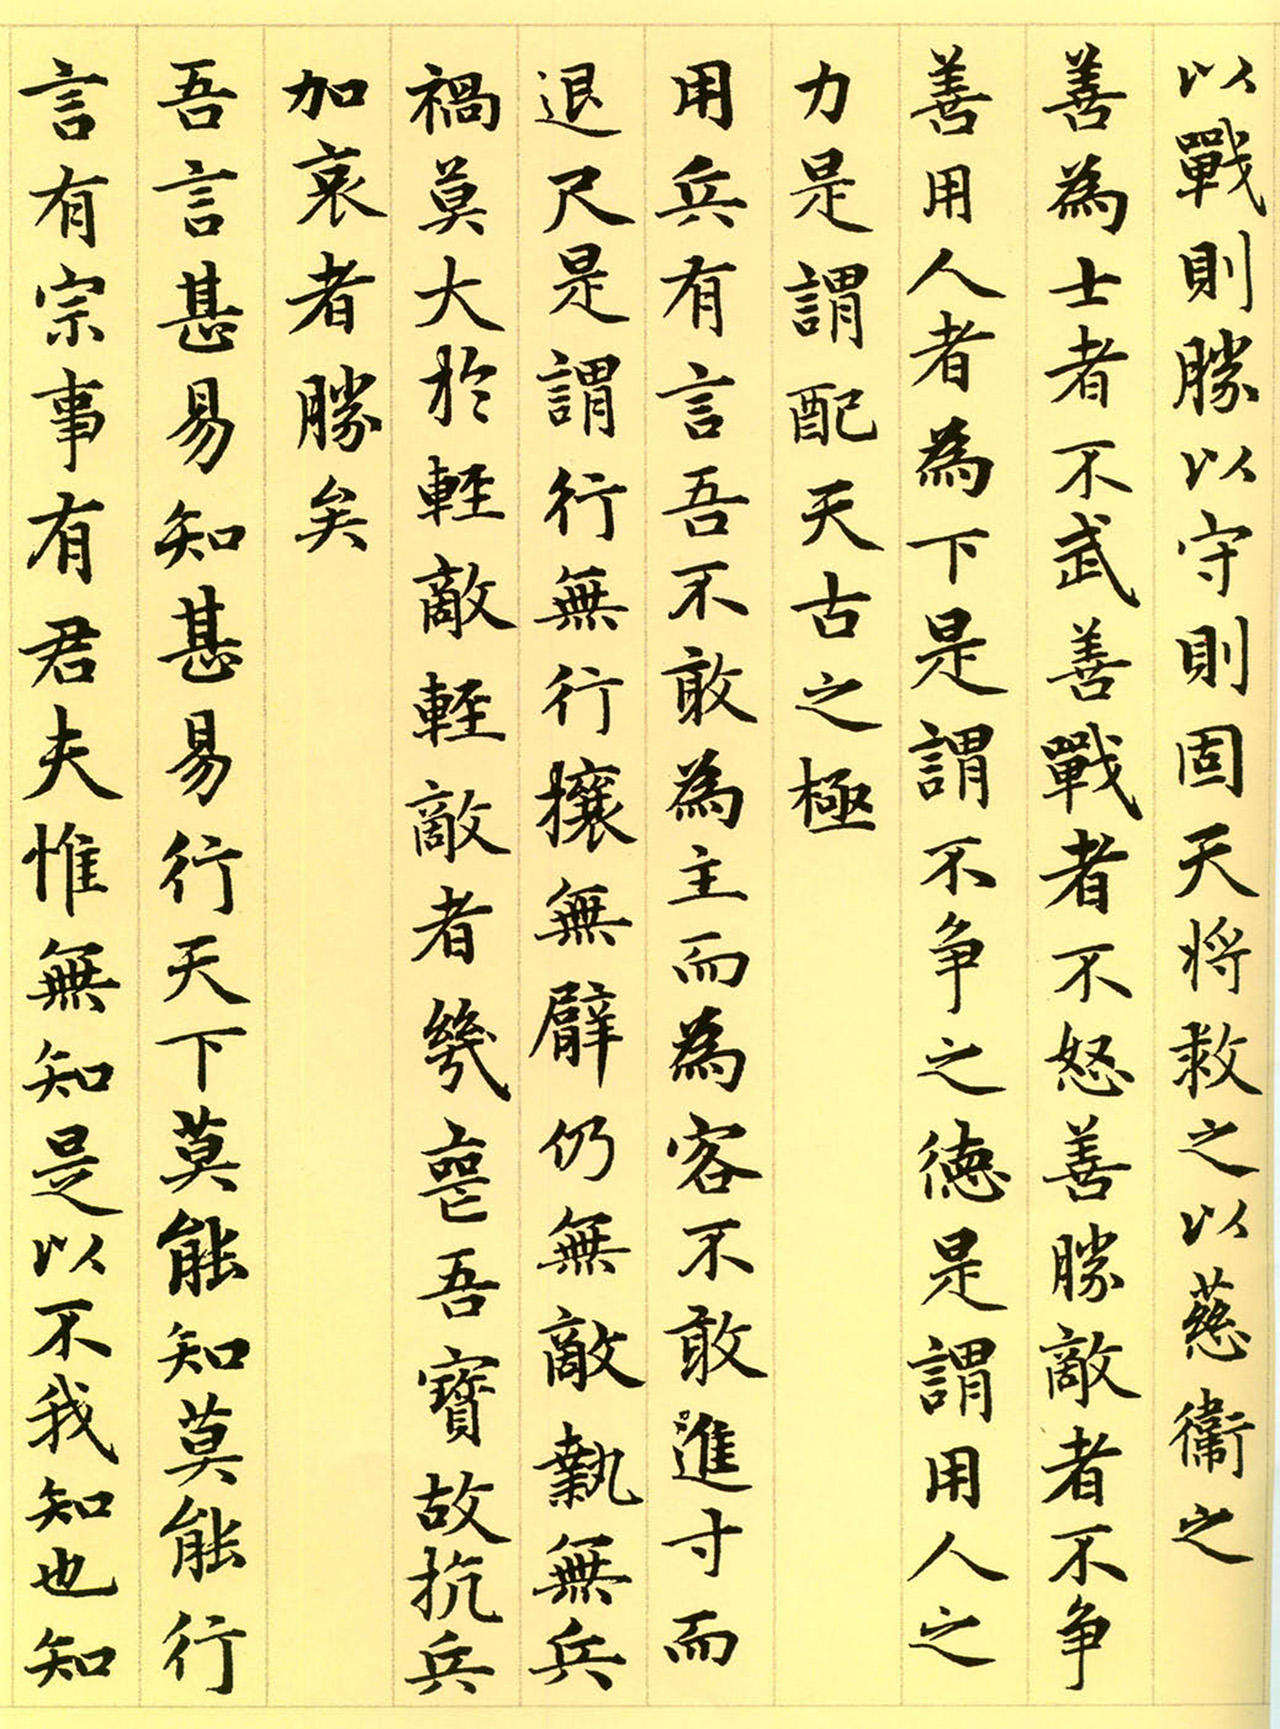 以戰則勝以守則固天將救之以慈衞之
善為士者不武善戰者不怒善勝敵者不争
善用人者為下是謂不争之德是謂用人之
力是謂配天古之極
用兵有言吾不敢為主而為客不敢進寸而
退尺是謂行無行攘無臂仍無敵執無兵
禍莫大於輕敵輕敵者幾喪吾寶故抗兵
加哀者勝矣
吾言甚易知甚易行天下莫能知莫能行
言有宗事有君夫惟無知是以不我知也知